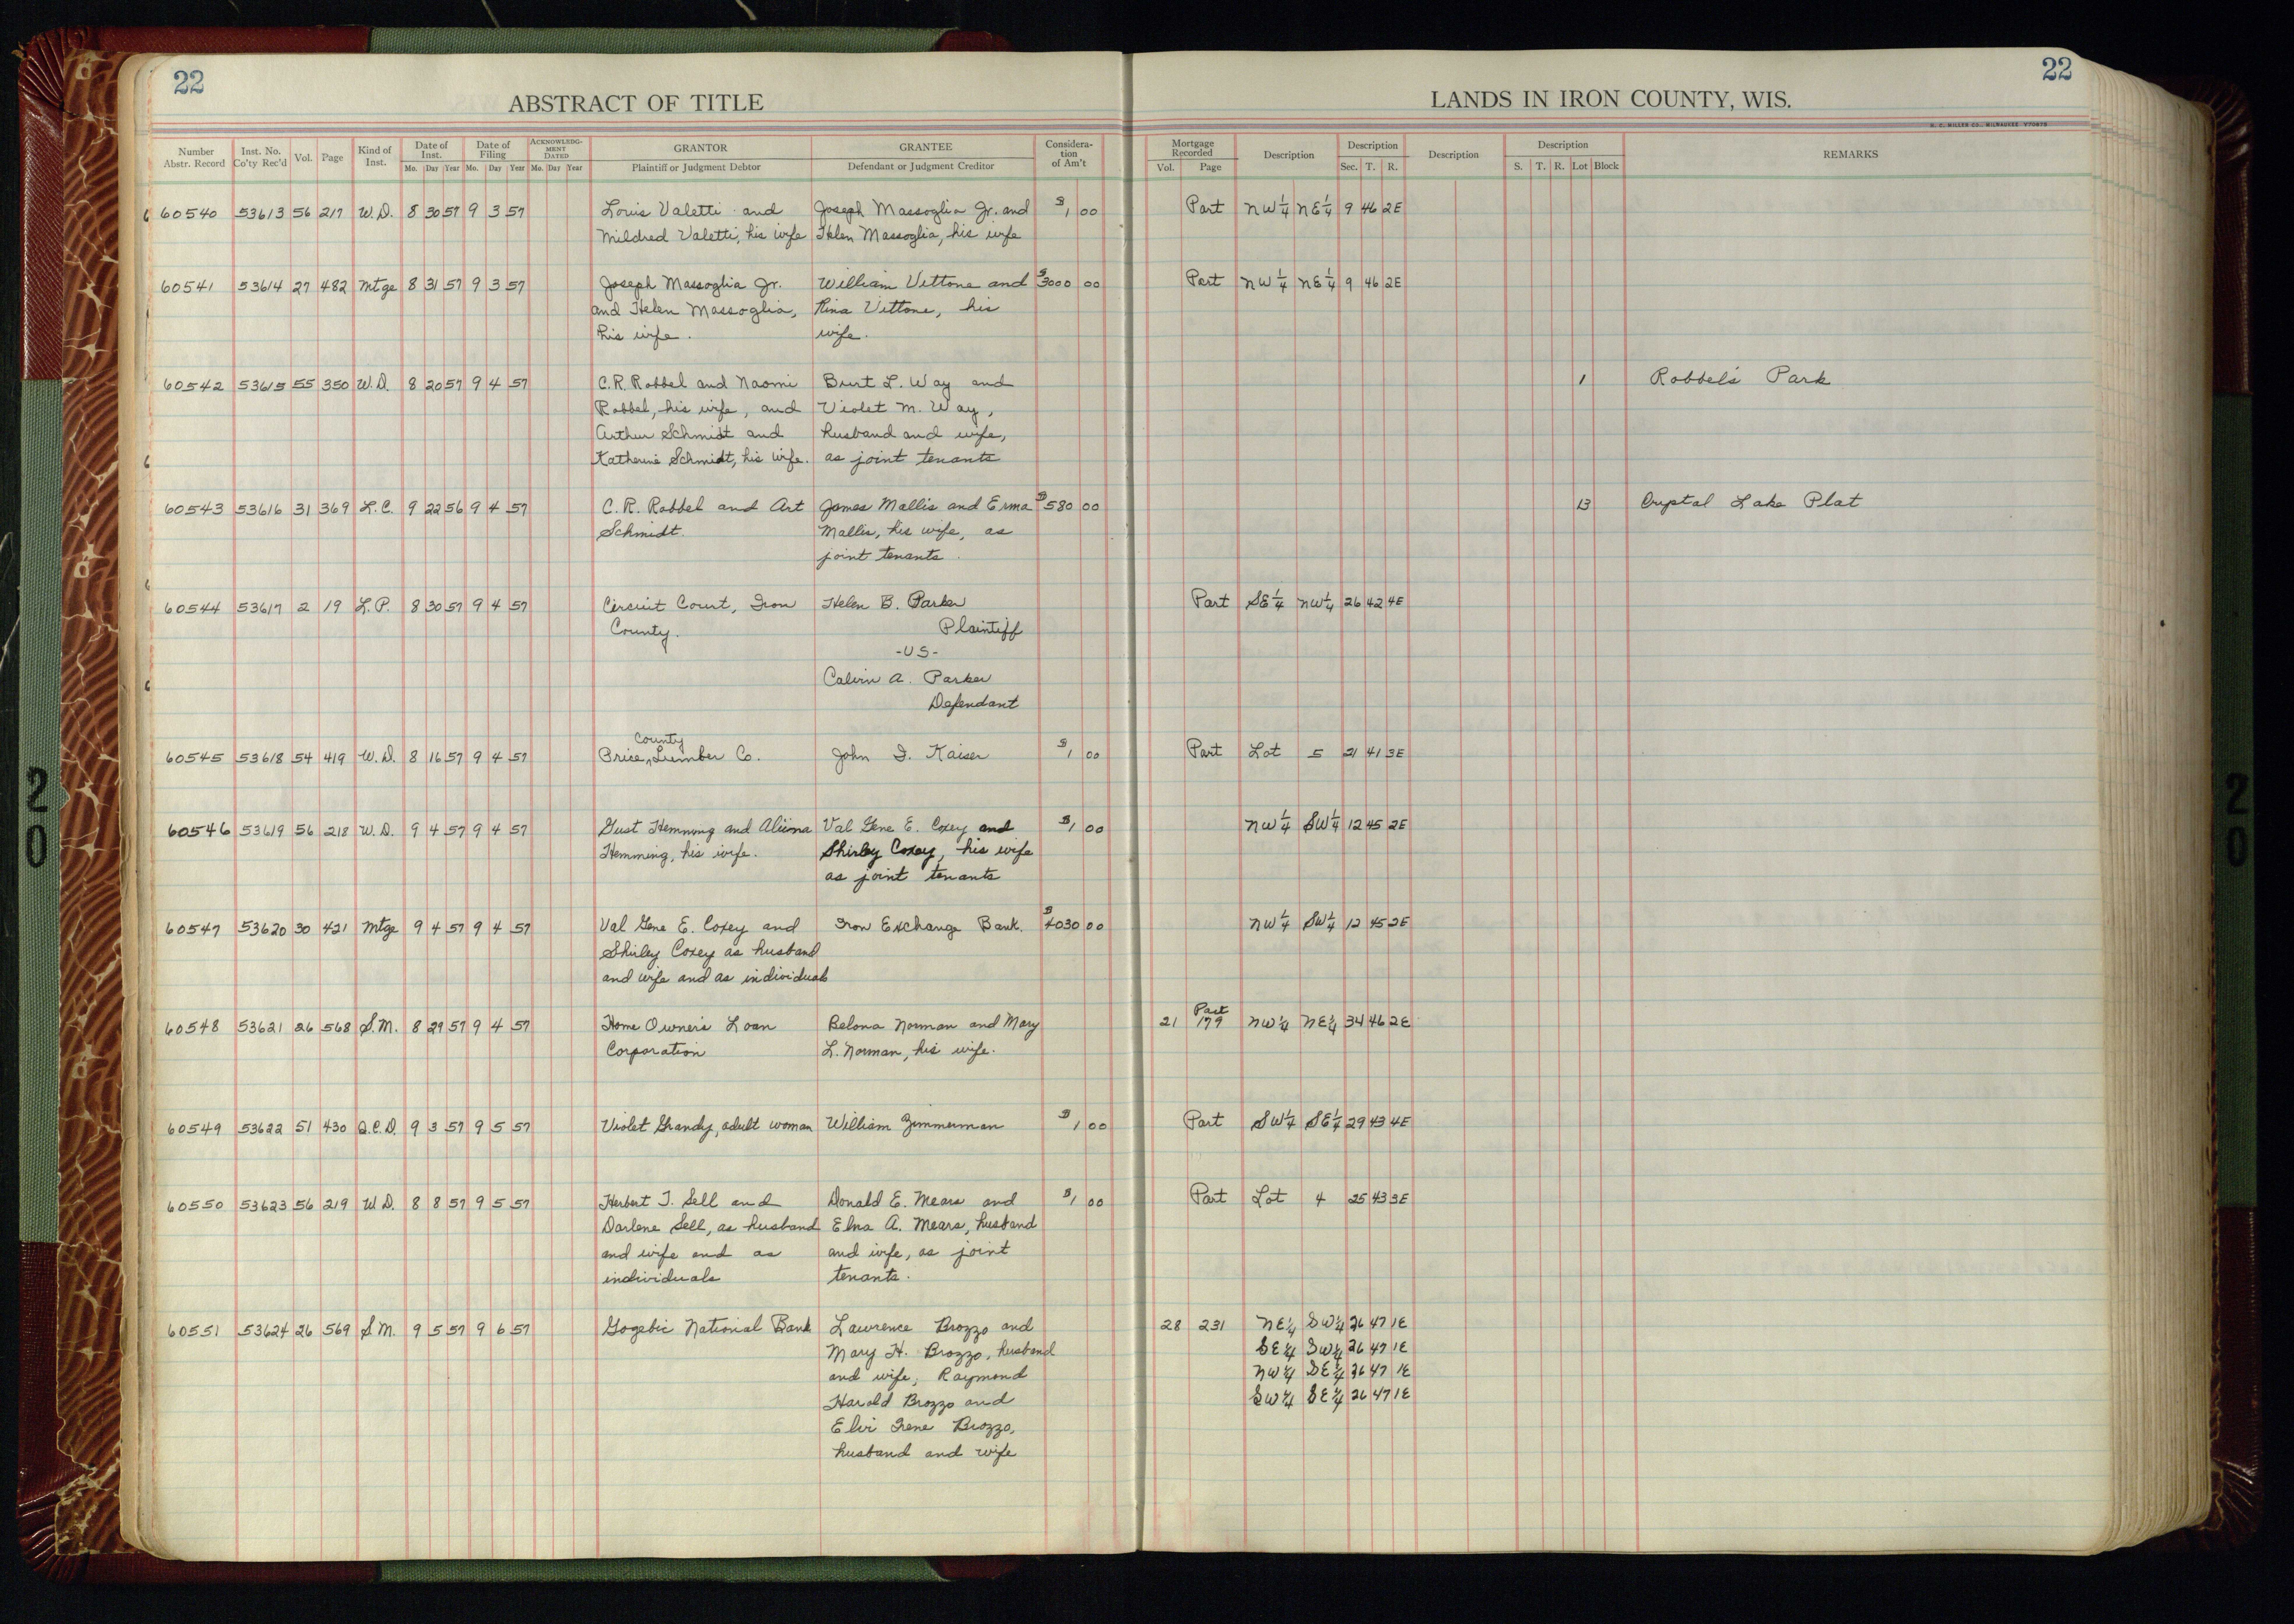 22
22
ABSTRACT OF TITLE
LANDS IN IRON COUNTY, WIS.
Number Abstr. Record Inst. No. Co'ty Rec'd Vol. Page Kind of Inst. Date of Inst. Mo. Day Year Date of Filing Mo. Day Year ACKNOWLEDGMENT DATED Mo. Day Year GRANTOR Plaintiff or Judgment Debtor GRANTEE Defendant or Judgment Creditor Consideration of Am't Mortgage Recorded Vol. Page Description Description Sec. T. R. Description Description S. T. R. Lot Block REMARKS
60540 53613 56 217 W.D. 8 30 57 9 3 57 Louis Valetti and Joseph Massoglia Jr. and $1 00 Part NW¼ NE¼ 9 46 2E
Mildred Valetti, his wife Helen Massoglia, his wife
60541 53614 27 482 Mtge 8 31 57 9 3 57 Joseph Massoglia Jr. William Vittone and $3000 00 Part NW¼ NE¼ 9 46 2E
and Helen Massoglia, Rina Vittone, his
his wife. wife.
60542 53615 55 350 W.D. 8 20 57 9 4 57 C.R. Robbel and Naomi Burt L. Way and 1 Robbel's Park
Robbel, his wife, and Violet M. Way,
Arthur Schmidt and husband and wife,
Katherine Schmidt, his wife. as joint tenants
60543 53616 31 369 L.C. 9 22 56 9 4 57 C. R. Robbel and Art James Mallis and Erma $580 00 13 Crystal Lake Plat
Schmidt. Mallis, his wife, as
joint tenants.
60544 53617 2 19 L.P. 8 30 57 9 4 57 Circuit Court, Iron Helen B. Parker Part SE¼ NW¼ 26 42 4E
County. Plaintiff
-VS-
Calvin A. Parker
Defendant
County
60545 53618 54 419 W.D. 8 16 57 9 4 57 Price, Lumber Co. John I. Kaiser $1 00 Part Lot 5 21 41 3E
60546 53619 56 218 W.D. 9 4 57 9 4 57 Gust Hemming and Aliina Val Gene E. Coxey and $1 00 NW¼ SW¼ 12 45 2E
Hemming, his wife. Shirley Coxey, his wife
as joint tenants
60547 53620 30 421 Mtge 9 4 57 9 4 57 Val Gene E. Coxey and Iron Exchange Bank. $4030 00 NW¼ SW¼ 12 45 2E
Shirley Coxey as husband
and wife and as individuals
60548 53621 26 568 S.M. 8 29 57 9 4 57 Home Owner's Loan Belona Norman and Mary 21 Part 179 NW¼ NE¼ 34 46 2E
Corporation L. Norman, his wife.
60549 53622 51 430 Q.C.D. 9 3 57 9 5 57 Violet Grandy, adult woman William Zimmerman $1 00 Part SW¼ SE¼ 29 43 4E
60550 53623 56 219 W.D. 8 8 57 9 5 57 Herbert T. Sell and Donald E. Mears and $1 00 Part Lot 4 25 43 3E
Darlene Sell, as husband Elna A. Mears, husband
and wife and as and wife, as joint
individuals tenants.
60551 53624 26 569 S.M. 9 5 57 9 6 57 Gogebic National Bank Lawrence Brozzo and 28 231 NE¼ SW¼ 26 47 1E
Mary H. Brozzo, husband SE¼ SW¼ 26 47 1E
and wife; Raymond NW¼ SE¼ 26 47 1E
Harold Brozzo and SW¼ SE¼ 26 47 1E
Elvi Irene Brozzo,
husband and wife
20
20